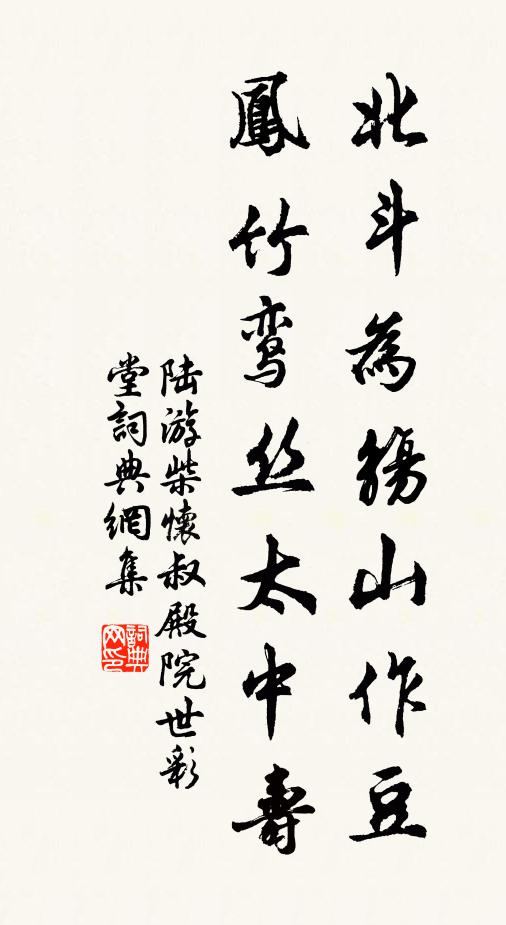 北斗為觴山作豆
鳳竹鸾丝太中壽
陆游柴懷叔殿院世彩
堂詞典網集
詞典
网印